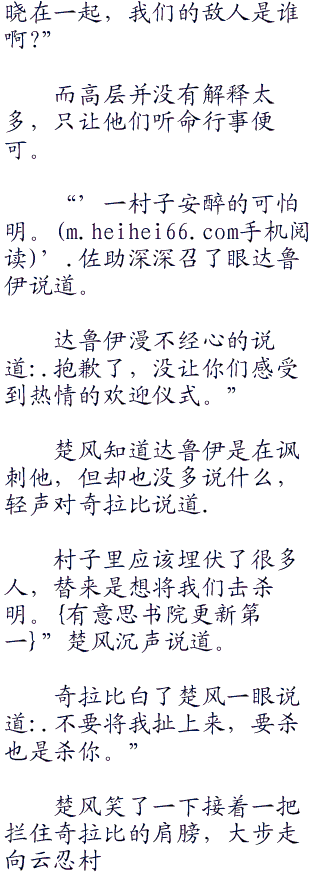 晓在一起，我们的敌人是谁
啊?”
而高层并没有解释太
多，只让他们听命行事便
可。
“’一村子安醉的可怕
明。(m.heihei66.com手机阅
读)’.佐助深深召了眼达鲁
伊说道。
达鲁伊漫不经心的说
道:.抱歉了，没让你们感受
到热情的欢迎仪式。”
楚风知道达鲁伊是在讽
刺他，但却也没多说什么，
轻声对奇拉比说道.
村子里应该埋伏了很多
人，替来是想将我们击杀
明。{有意思书院更新第
一}”楚风沉声说道。
奇拉比白了楚风一眼说
道:.不要将我扯上来，要杀
也是杀你。”
楚风笑了一下接着一把
拦住奇拉比的肩膀，大步走
向云忍村